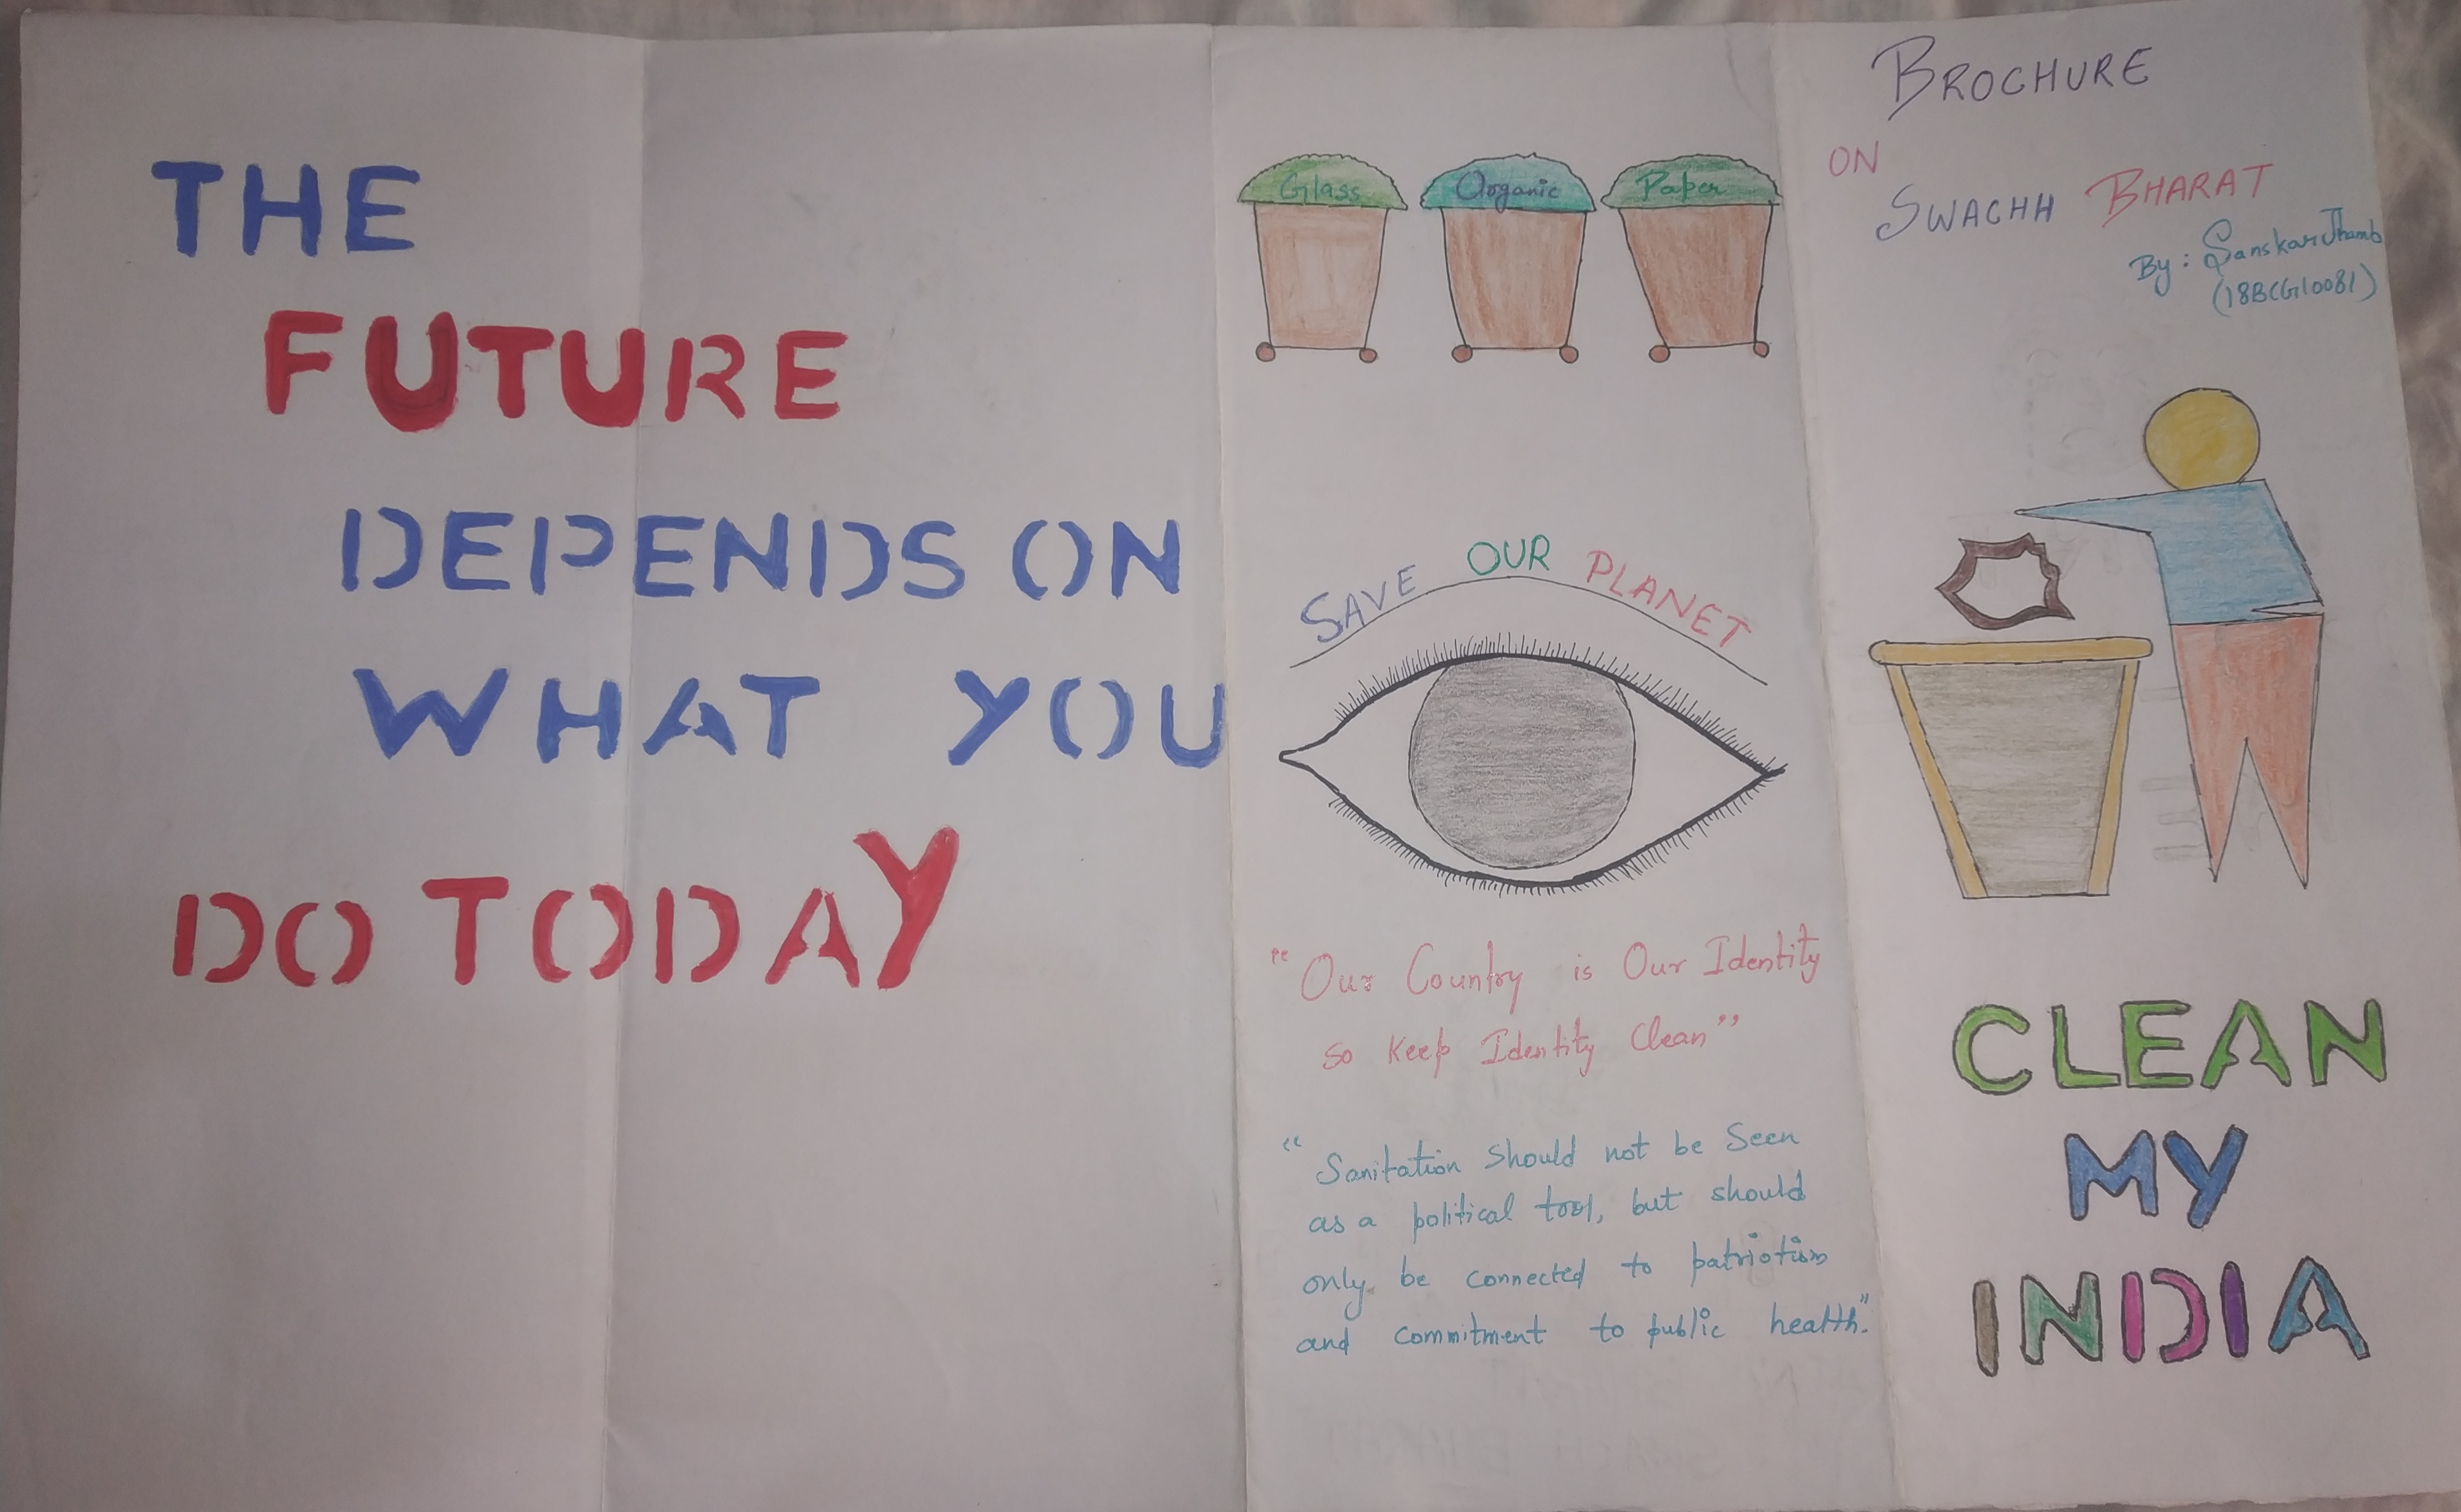 THE
FUTURE
DEPENDS ON
WHAT YOU
DO TODAY
Glass Organic Paper
SAVE OUR PLANET
"Our Country is Our Identity
so Keep Identity Clean"
"Sanitation should not be Seen
as a political tool, but should
only be connected to patriotism
and commitment to public health."
BROCHURE
ON
SWACHH BHARAT
By: Sanskar Jhamb
(18BCG10081)
CLEAN
MY
INDIA